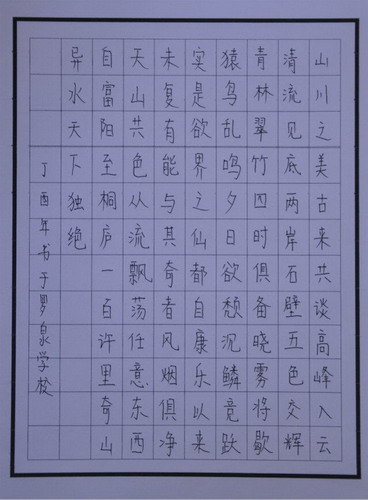 山川之美古来共谈高峰入云
清流见底两岸石壁五色交辉
青林翠竹四时俱备晓雾将歇
猿鸟乱鸣夕日欲颓沉鳞竞跃
实是欲界之仙都自康乐以来
未复有能与其奇者风烟俱净
天山共色从流飘荡任意东西
自富阳至桐庐一百许里奇山
异水天下独绝
丁酉年书于罗泉学校